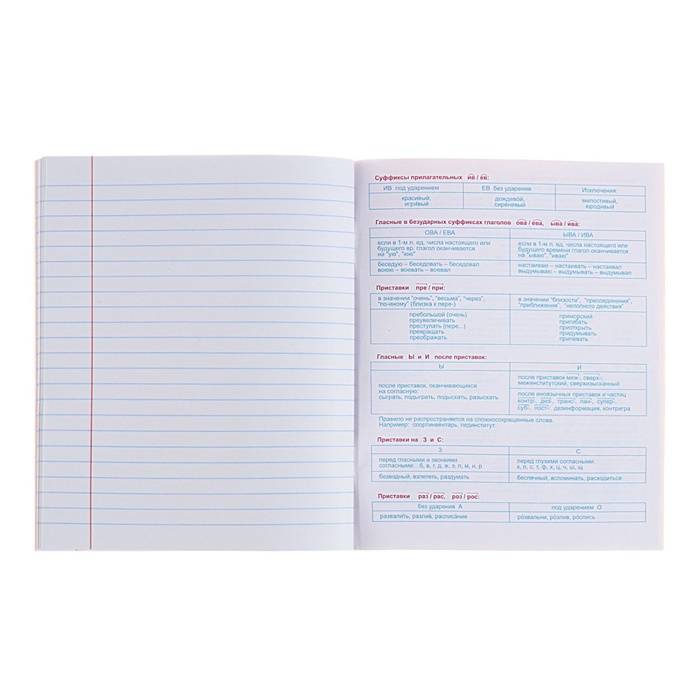 Суффиксы прилагательных ив / ев:
ИВ под ударением ЕВ без ударения Исключения:
красивый, дождевой, милостивый,
игривый сиреневый юродивый
Гласные в безударных суффиксах глаголов ова / ева, ыва / ива:
ОВА / ЕВА ЫВА / ИВА
если в 1-м л. ед. числа настоящего или если в 1-м л. ед. числа настоящего или
будущего вр. глагол оканчивается будущего времени глагол оканчивается
на "ую", "юю" на "ываю", "иваю"
беседую – беседовать – беседовал настаиваю – настаивать – настаивал
воюю – воевать – воевал выдумываю – выдумывать – выдумывал
Приставки пре / при:
в значении "очень", "весьма", "через", в значении "близости", "присоединения",
"по-иному" (близка к пере-) "приближения", "неполного действия"
пребольшой (очень) приморский
преувеличивать пригибать
преступать (пере...) приоткрыть
превращать придумывать
преображать припевать
Гласные Ы и И после приставок:
Ы И
после приставок меж-, сверх-:
межинститутский, сверхизысканный
после приставок, оканчивающихся
на согласную:
сыграть, подыграть, подыскать, разыскать
после иноязычных приставок и частиц
контр-, дез-, транс-, пан-, супер-,
суб-, пост-: дезинформация, контригра
Правило не распространяется на сложносокращенные слова.
Например: спортинвентарь, пединститут.
Приставки на З и С:
З С
перед гласными и звонкими перед глухими согласными:
согласными: б, в, г, д, ж, з, л, м, н, р к, п, с, т, ф, х, ц, ч, ш, щ
безводный, взлететь, раздумать беспечный, вспоминать, расходиться
Приставки раз / рас, роз / рос:
без ударения А под ударением О
развалить, разлив, расписание розвальни, розлив, роспись